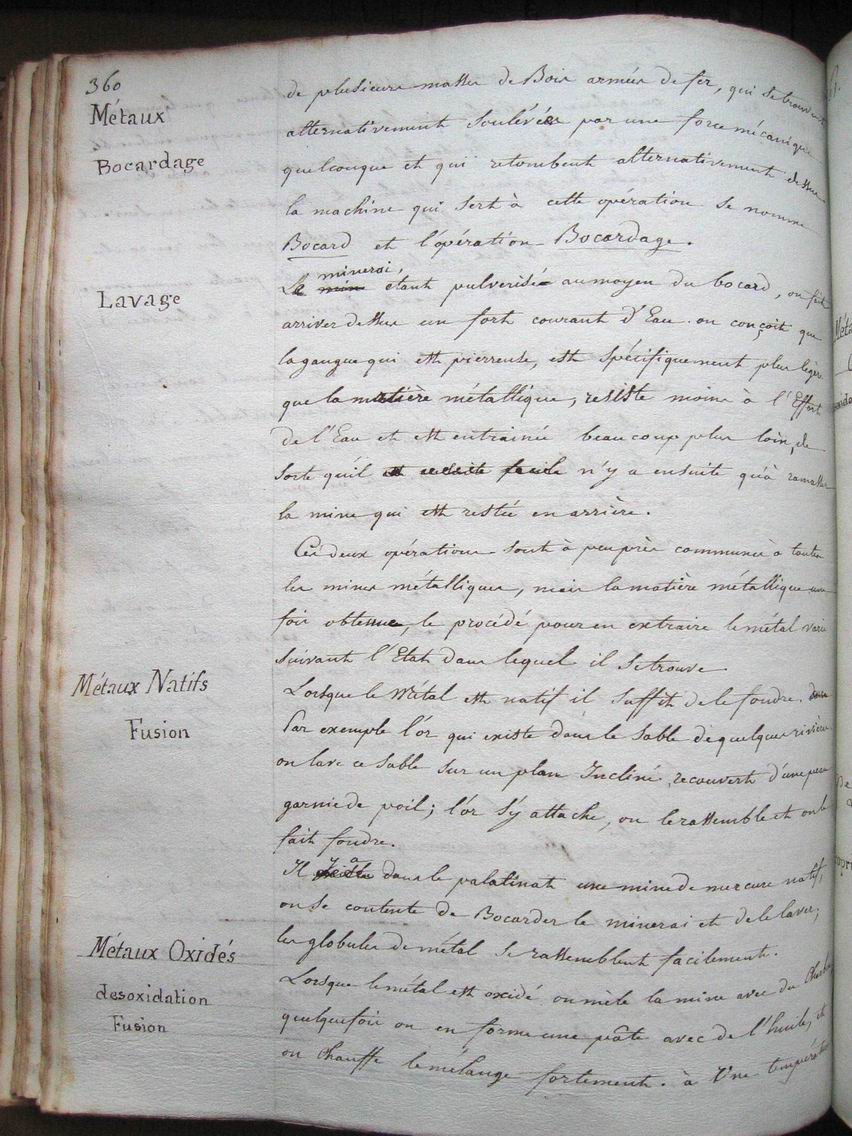 360
Métaux
Bocardage
de plusieurs masses de Bois armées de fer, qui se trouvent
alternativement soulevées par une force mécanique
quelconque et qui retombent alternativement dessus
la machine qui sert à cette opération se nomme
Bocard et l'opération Bocardage.
Lavage
Le minerai, étant pulverisé au moyen du bocard, on fait
arriver dessus un fort courant d'Eau. on conçoit que
la gangue qui est pierreuse, est spécifiquement plus légère
que la matière métallique, résiste moins à l'Effort
de l'Eau et est entrainée beaucoup plus loin, de
sorte qu'il n'y a ensuite qu'à ramasser
la mine qui est restée en arrière.
Ces deux opérations sont à peu près communes à toutes
les mines métalliques, mais la matière métallique une
fois obtenue, le procédé pour en extraire le métal varie
suivant l'Etat dans lequel il se trouve
Métaux Natifs
Fusion
Lorsque le Métal est natif il suffit de le fondre,
Par exemple l'or qui existe dans le sable de quelques rivières
on lave ce sable sur un plan Incliné, recouvert d'une peau
garnie de poil; l'or s'y attache, on le rassemble et on le
fait fondre.
Il y a dans le palatinat une mine de mercure natif,
on se contente de Bocarder le minerai et de le laver,
les globules de métal se rassemblent facilement.
Métaux Oxidés
desoxidation
Fusion
Lorsque le métal est oxidé on mêle la mine avec du Charbon
quelquefois on en forme une pâte avec de l'huile, et
on chauffe le mélange fortement. à Une température